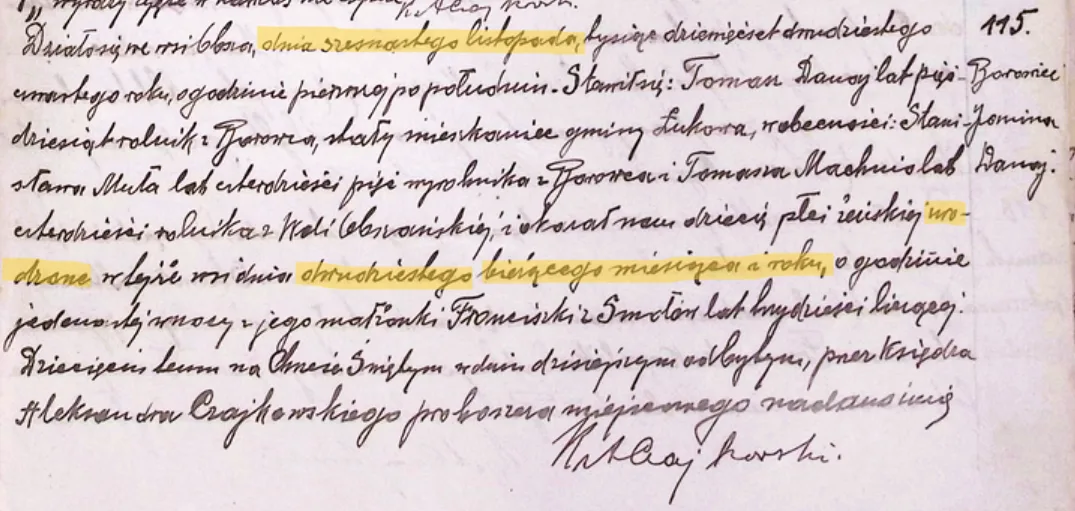 Działo się we wsi Obsza, dnia szesnastego listopada, tysiąc dziewięćset dwudziestego 115.
czwartego roku, o godzinie pierwszej po południu. Stawił się: Tomasz Danaj lat pięć- Borowiec
dziesiąt rolnik z Borowca, stały mieszkaniec gminy Łukowa, w obecności: Stani- Janina
sława Muła lat czterdzieści pięć wyrobnika z Borowca i Tomasza Machnio lat Danaj.
czterdzieści rolnika z Woli Obszańskiéj, i okazał nam dziecię płci żeńskiéj uro-
dzone w tejże wsi dnia dwudziestego bieżącego miesiąca i roku, o godzinie
jedenastej w nocy z jego małżonki Franciszki z Smutów lat trzydzieści liczącej.
Dziecięciu temu na Chrzcie Świętym w dniu dzisiejszym odbytym, przez Księdza
Aleksandra Czajkowskiego proboszcza miejscowego nadano imię